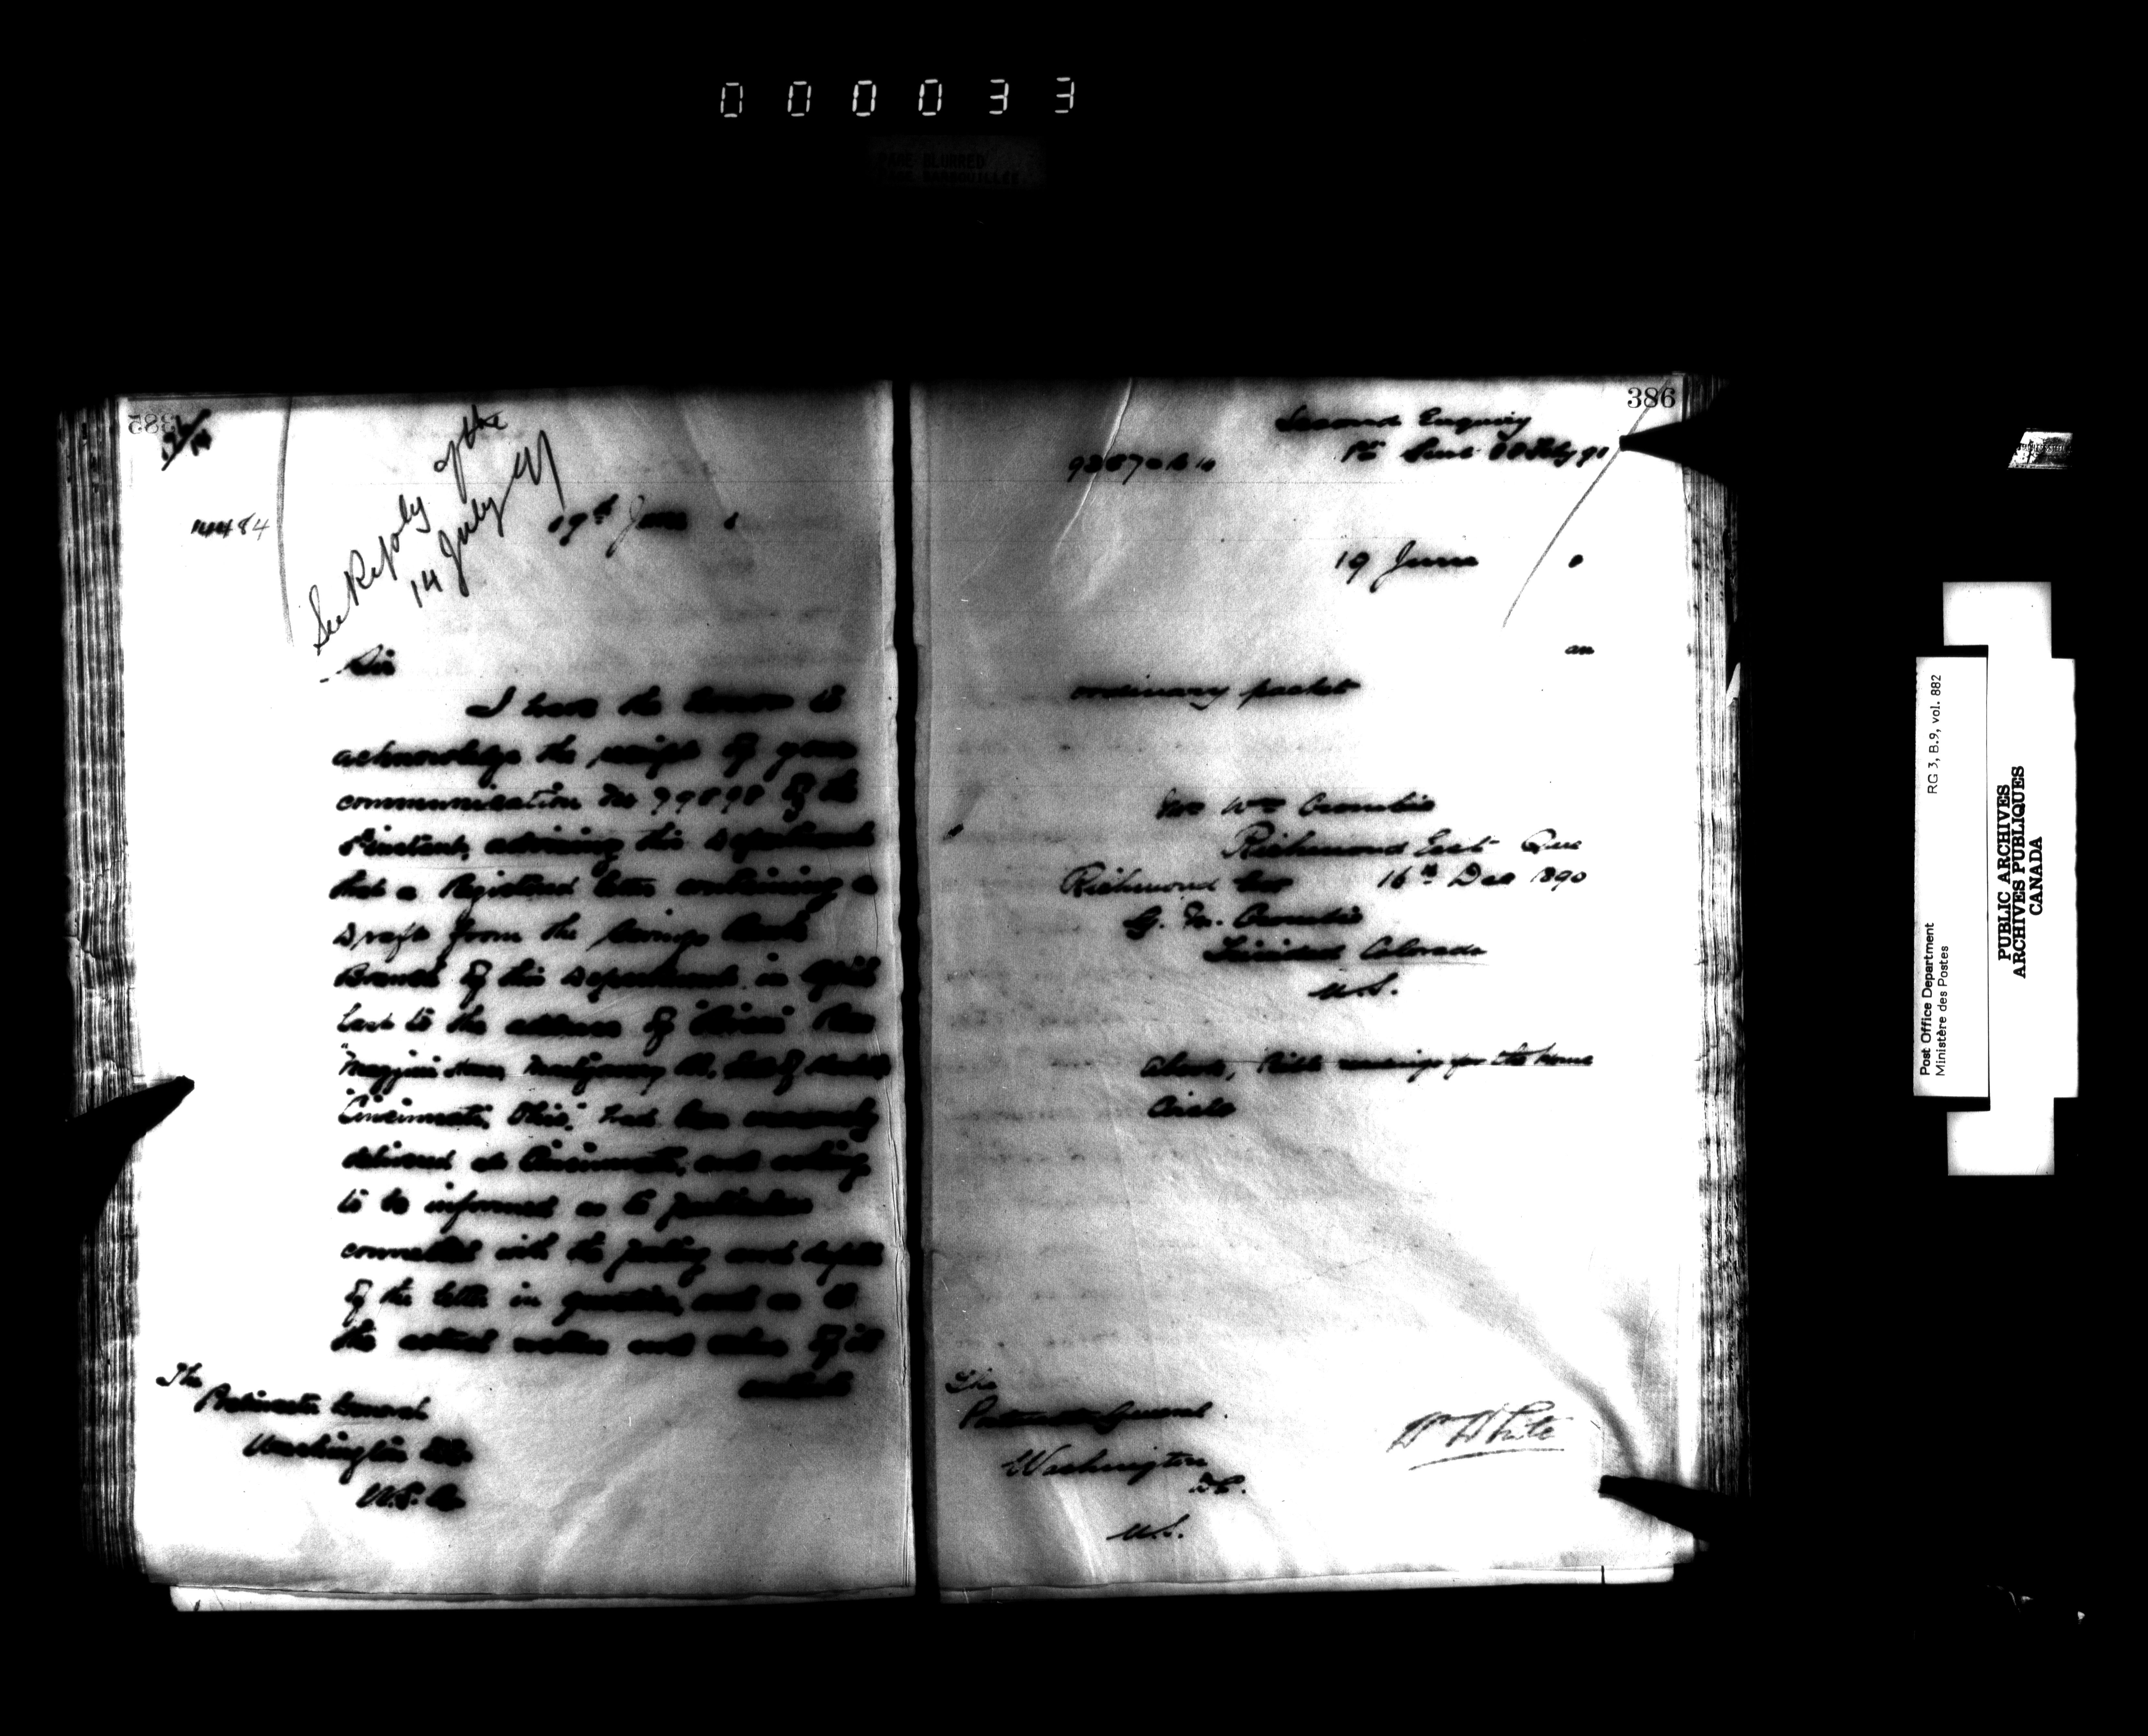 000033
PAGE BLURRED
385
See Reply of the
14 July 91
19th June 1
Sir
I have the honor to
acknowledge the receipt of your
communication No 79898 of the
instant, advising this Department
that a Registered letter containing a
Draft from the Savings Bank
Branch of this Department in April
last to the address of
Montgomery
Cincinnati, Ohio," had been
delivered at Cincinnati, and asking
to be informed as to particulars
connected with the posting and
of the letter in question, and as to
the actual nature and value of its
contents
The
Postmaster General
Washington D.C.
U.S.A.
386
Second Enquiry
Sent Feby 91
19 June
an
ordinary packet
Mrs Wm Crombie
Richmond East Que
Richmond East 16th Dec 1890
G. M. Crombie
Trinidad Colorado
U.S.
Bible readings for the Home
Circle
The
Postmaster General.
Washington
D.C.
U.S.
W White
Post Office Department
Ministère des Postes
RG 3, B.9, vol. 882
PUBLIC ARCHIVES
ARCHIVES PUBLIQUES
CANADA